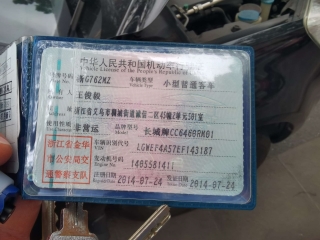 中华人民共和国机动车
Vehicle License of the People's Republic of
G762MZ 车辆类型 小型普通客车
王俊毅
浙江省义乌市稠城街道 二区45幢2单元501室
非营运 品牌型号 长城牌CC6460RM01
浙江省金华 车辆识别代号 LGWEF4A57EF143187
市公安局交 发动机号码 1405581411
通警察支队 注册日期 2014-07-24 发证日期 2014-07-24